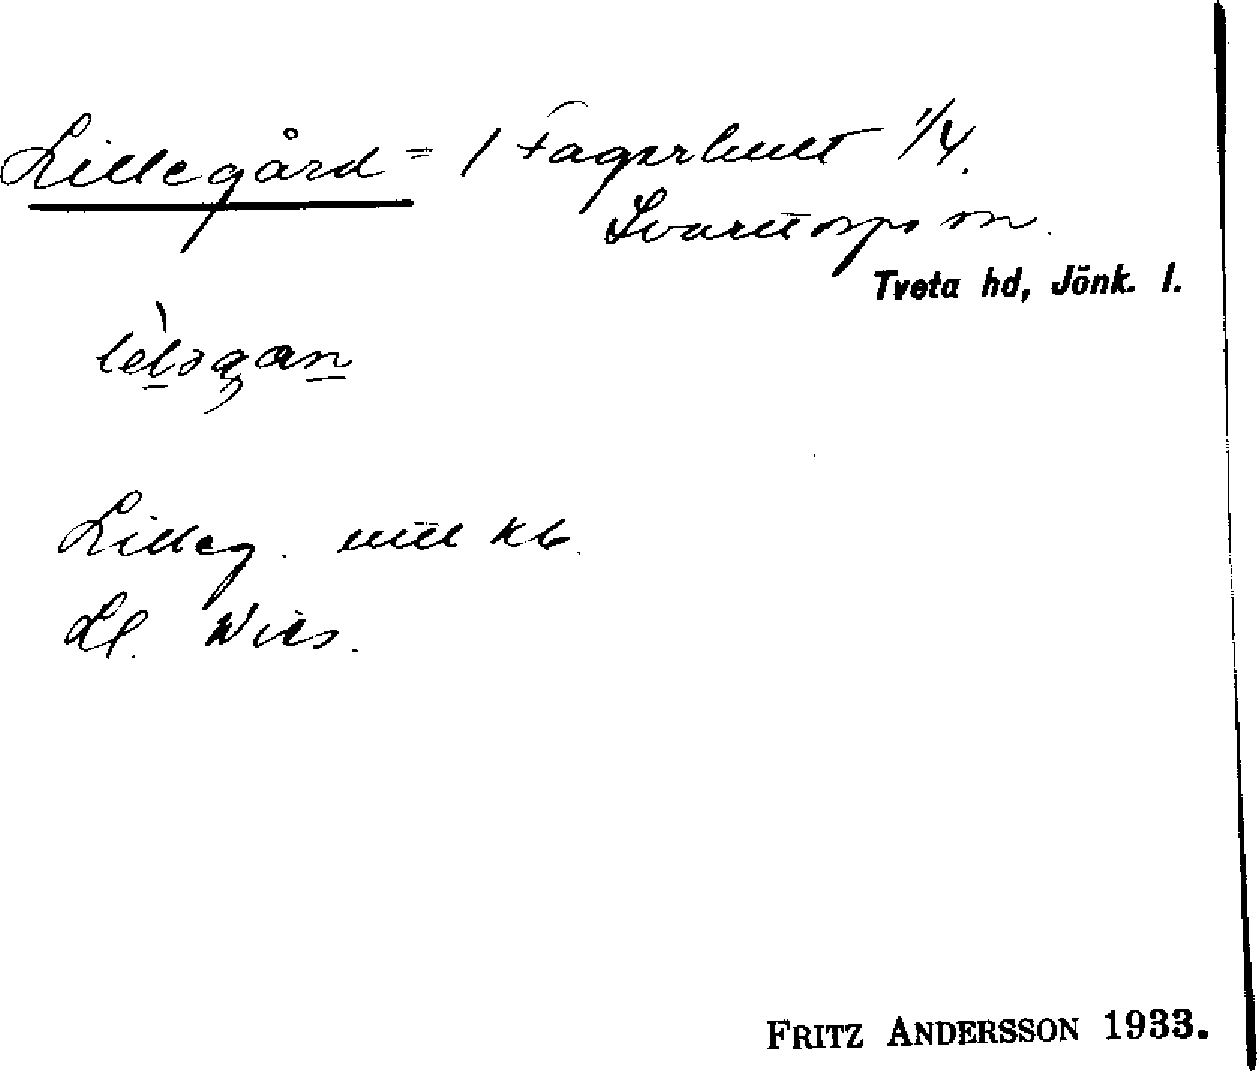 Lillegård = 1 Fagerhult 1/4.
Svarttorps sn.
Tveta hd, Jönk. l.
Lilleg. till kb.
Ll.
FRITZ ANDERSSON 1933.